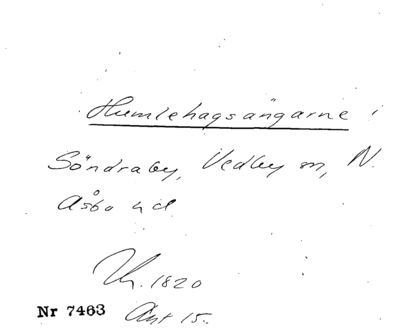 Humlehagsängarne i
Söndraby, Vedby sn, N.
Åsbo hd
Kh. 1820
Nr 7463 Akt 15.